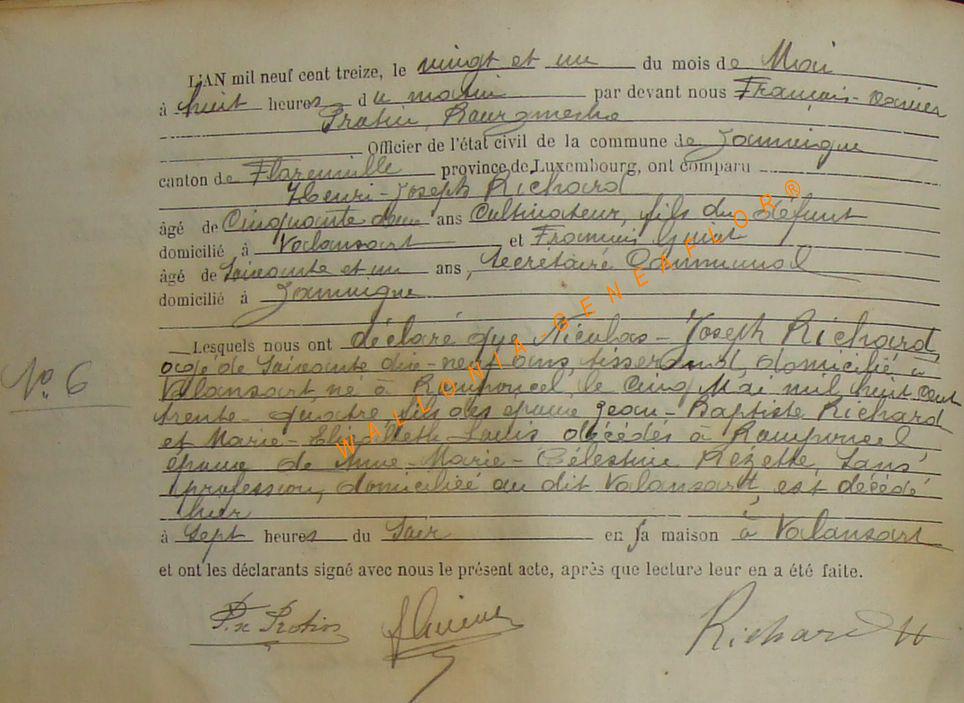 L'AN mil neuf cent treize, le vingt et un du mois de Mai
à huit heures du matin par devant nous François-Xavier
Protin, Bourgmestre
Officier de l'état civil de la commune de Jamoigne
canton de Florenville province de Luxembourg, ont comparu
Henri-Joseph Richard
âgé de Cinquante deux ans Cultivateur, fils du défunt
domicilié à Valansart et François
âgé de Soixante et un ans, Secrétaire Communal
domicilié à Jamoigne
Lesquels nous ont déclaré que Nicolas-Joseph Richard,
Nº 6
âgé de Soixante dix-neuf ans, tisserand, domicilié à
Valansart, né à Romponcel, le cinq Mai mil huit cent
trente-quatre fils des époux Jean-Baptiste Richard
et Marie-Elisabeth Louis décédés à Romponcel,
époux de Anne-Marie-Célestine Rézette, Sans
profession, domiciliée au dit Valansart, est décédé
hier
à Sept heures du Soir en sa maison à Valansart
et ont les déclarants signé avec nous le présent acte, après que lecture leur en a été faite.
Protin Richard H
WALLONIA-BENEAFLOR®